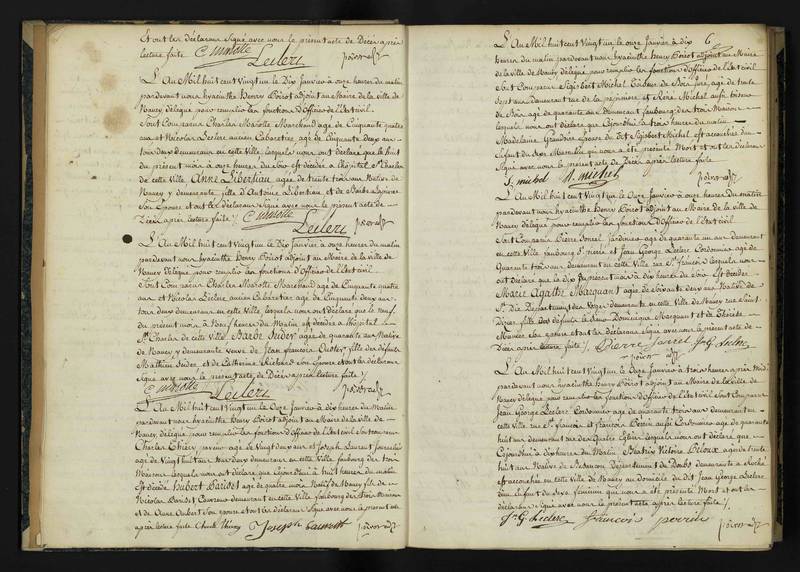 Et ont les déclarans Signé avec nous le présent acte de Décès après
lecture faite C marotte Leclerc
L'An Mil huit cent Vingt un le Dix Janvier à onze heures du matin
pardevant nous hyacinthe Henry Poirot adjoint au Maire de la ville de
Nancy délégué pour remplir les fonctions d'Officier de l'Etat civil.
Sont Comparus Charles Marotte Marchand agé de Cinquante quatre
ans et Nicolas Leclerc ancien Cabaretier, agé de Cinquante Deux ans
tous deux demeurans en cette Ville, lesquels nous ont déclaré que le huit
du présent mois à onze heures du soir est décédée à l'hôpital St Charles
de cette ville Anne Libertieu agée de trente trois ans Native de
Nancy y demeurante, fille d'Antoine Libertieu et de
Son Epouse et ont les déclarans Signé avec nous le présent acte de
Décès après lecture faite /. C marotte Leclerc
L'An Mil huit cent Vingt un le Dix Janvier à onze heures du matin
pardevant nous hyacinthe Henry Poirot adjoint au Maire de la ville
de Nancy délégué pour remplir les fonctions d'Officier de l'Etat civil.
Sont Comparus Charles Marotte Marchand agé de Cinquante quatre
ans et Nicolas Leclerc ancien Cabaretier agé de Cinquante Deux ans
tous deux demeurans en cette Ville, lesquels nous ont déclaré que le neuf
du présent mois à Neuf heures du Matin est décédée à l'hôpital
St Charles de cette ville Barbe Suder agée de quarante ans Native
de Nancy y demeurante Veuve de Jean François fille des défunts
Mathieu Suder et de Catherine Richard son Epouse et ont les déclarans
Signé avec nous le présent acte de Décès après lecture faite /.
C marotte Leclerc
L'An Mil huit cent Vingt un le Onze Janvier à dix heures du Matin
pardevant nous hyacinthe Henry Poirot adjoint au Maire de la ville de
Nancy, délégué pour remplir les fonctions d'Officier de l'Etat civil Sont comparus
Charles Thiery agé de Vingt deux ans et Joseph Laurent
agé de Vingt huit ans tous deux demeurans en cette Ville, faubourg des trois
Maisons lesquels nous ont déclaré que Cejourd'hui à huit heures du matin
Est décédé Hubert Baridet agé de quatre mois Natif de Nancy fils de
Nicolas Baridet demeurant en cette Ville faubourg des Trois Maisons
et de Anne Aubert Son Epouse et ont les déclarans Signé avec nous le présent acte
après lecture faite Charle Thiery Joseph Laurent
6
L'An Mil huit cent Vingt un le onze Janvier à dix
heures du matin pardevant nous hyacinthe Henry Poirot adjoint au Maire
de la ville de Nancy délégué pour remplir les fonctions d'Officier de l'Etat civil
Sont Comparus Sigisbert Michel agé de trente
Sept ans demeurant rue de la pépiniere et Réné Michel aussi
de Bois agé de quarante ans demeurant faubourg des trois Maisons
lesquels nous ont déclaré que Cejourd'hui à trois heures du matin
Madelaine Epouse du dit Sigisbert Michel est accouchée d'un
Enfant du Sexe Masculin qui nous a été présenté Mort et ont les déclarans
Signé avec nous le présent acte de Décès après lecture faite
S. michel R. michel
L'An Mil huit cent Vingt un le Onze Janvier à dix heures du matin
pardevant nous hyacinthe Henry Poirot adjoint au Maire de la ville de
Nancy délégué pour remplir les fonctions d'Officier de l'Etat civil
Sont Comparus Pierre Jardinier agé de quarante un ans demeurant
en cette Ville faubourg St pierre et Jean George Leclerc Cordonnier agé de
Quarante trois ans demeurant en cette Ville rue St francois lesquels nous
ont déclaré que le Dix du présent mois à dix heures du soir est décédée
Marie Agathe Marquant agée de Soixante deux ans Native de
St Dié Département des Vosges demeurante en cette Ville de Nancy rue Saint
Dizier fille des défunts le Sieur Dominique Marquant et de Thérèse
son epouse et ont les déclarans Signé avec nous le présent acte de
Décès après lecture faite /.
L'An Mil huit cent Vingt un le Onze Janvier à trois heures après Midi
pardevant nous hyacinthe Henry Poirot adjoint au Maire de la ville de
Nancy délégué pour remplir les fonctions d'Officier de l'Etat civil Sont Comparus
Jean George Leclerc Cordonnier agé de quarante trois ans demeurant en
cette Ville rue St francois et francois Perrin aussi Cordonnier agé de quarante
huit ans demeurant rue des Quatre Eglises lesquels nous ont déclaré que
Cejourd'hui à dix heures du Matin Victoire agée de trente
huit ans Native de Besançon Département du Doubs demeurante à
est accouchée en cette Ville de Nancy au domicile du dit Jean George Leclerc
d'un Enfant du Sexe féminin qui nous a été présenté Mort et ont les
déclarans Signé avec nous le présent acte après lecture faite /.
J. G Leclerc francois perrin